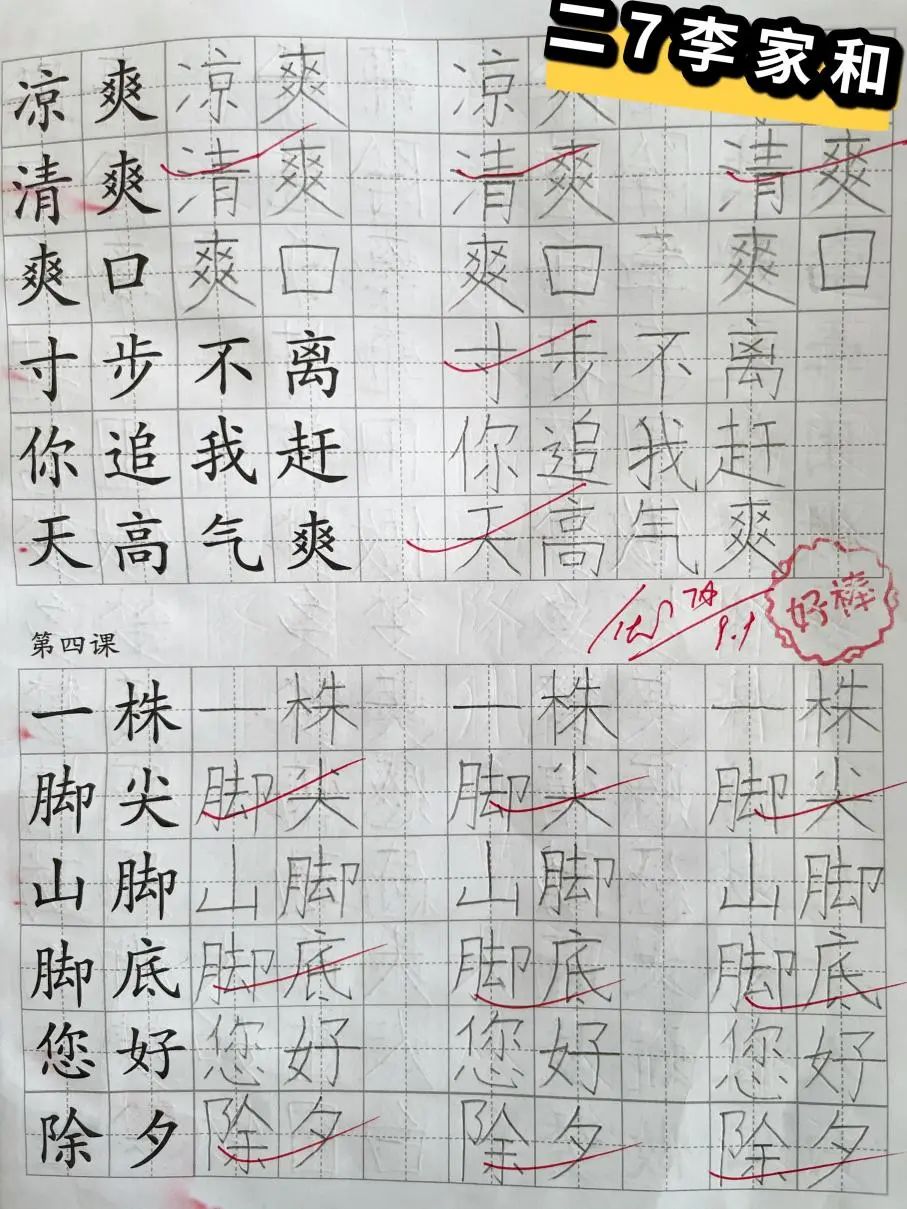 二7李家和
凉爽 凉爽 凉
清爽 清爽 清爽 清爽
爽口 爽口 爽口 爽口
寸步不离 寸步不离
你追我赶 你追我赶
天高气爽 天高气爽
优
9.9
好棒
第四课
一株 一株 一株 一株
脚尖 脚尖 脚尖 脚尖
山脚 山脚 山脚 山脚
脚底 脚底 脚底 脚底
您好 您好 您好 您好
除夕 除夕 除夕 除夕